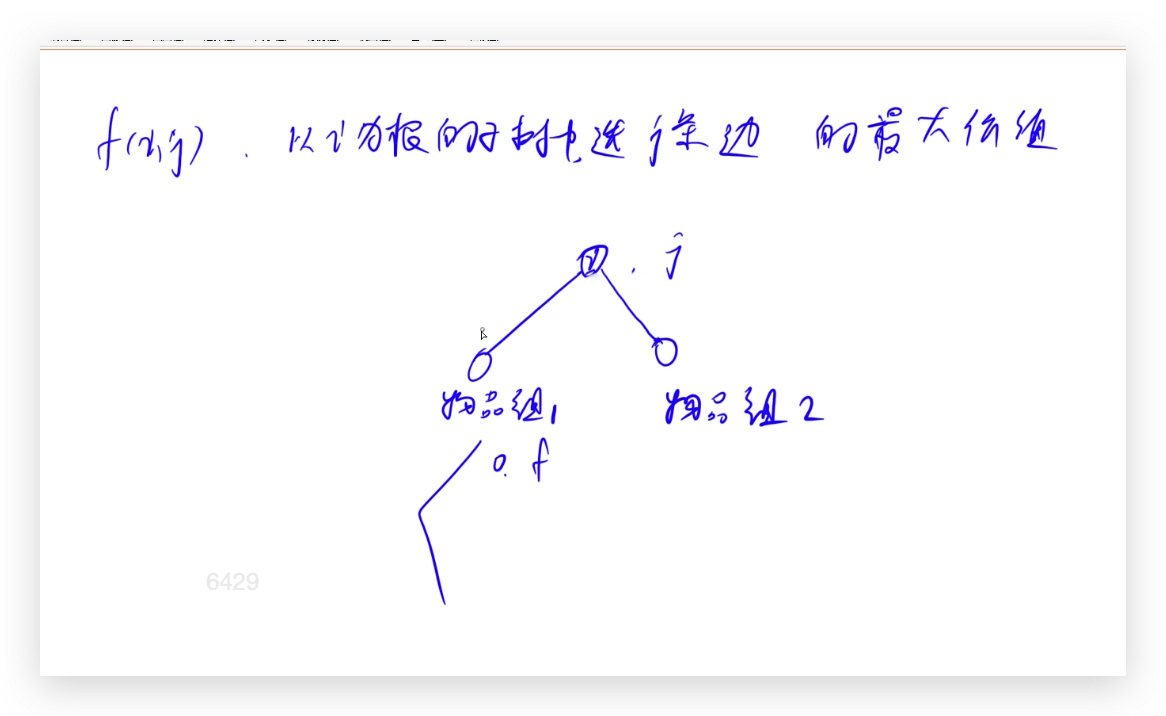 f(i,j). 以i为根的子树中选j条边 的最大价值
i . j
物品组1 物品组2
0. f
6429